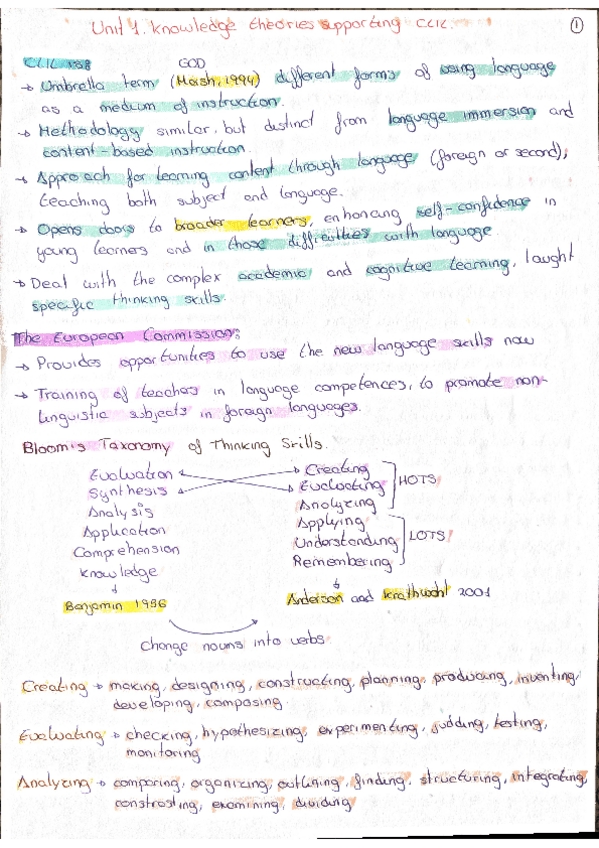 Unit 1. Knowledge theories supporting CLIL.
1
CLIL is8
GOD
→ Umbrella term (Marsh, 1994) different forms of using language
as a medium of instruction.
→ Methodology similar, but distinct from language immersion and
content-based instruction.
→ Approach for learning content through language (foreign or second),
teaching both subject and language.
→ Opens doors to broader learners, enhancing self-confidence in
young learners and in those difficulties with language.
→ Deal with the complex academic and cognitive learning, taught
specific thinking skills.
The European Commission:
→ Provides opportunities to use the new language skills now
→ Training of teachers in language competences, to promote non-
linguistic subjects in foreign languages.
Bloom's Taxonomy of Thinking Skills.
Evaluation
Synthesis
Analysis
Application
Comprehension
Knowledge
Benjamin 1956
Creating
Evaluating
Analyzing
HOTS
Applying
Understanding
Remembering
LOTS
Anderson and Krathwohl 2001
Change nouns into verbs
Creating → making, designing, constructing, planning, producing, inventing,
developing, composing
Evaluating → checking, hypothesizing, experimenting, judding, testing,
monitoring
Analyzing → comparing, organizing, outlining, finding, structuring, integrating,
constrasting, examining, dividing